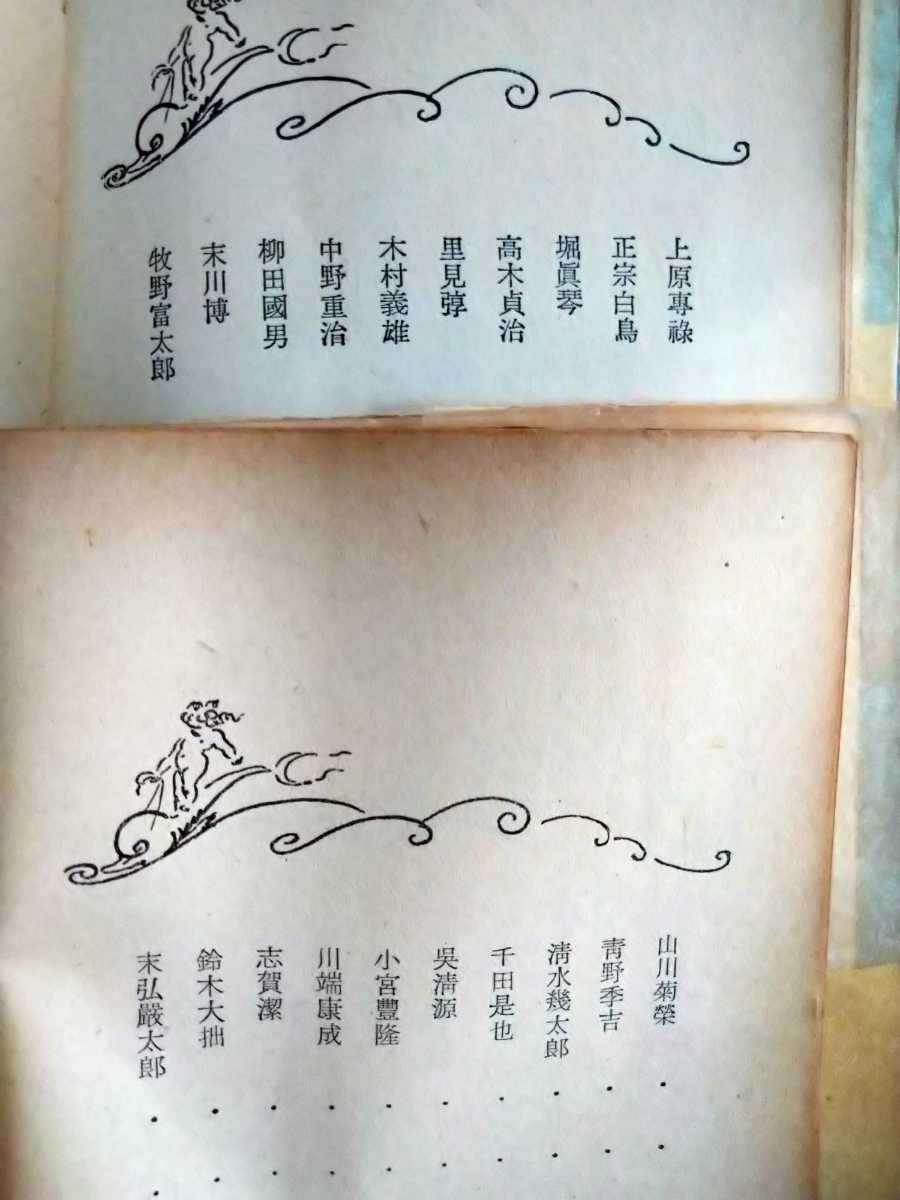 上原專祿
正宗白鳥
堀眞琴
高木貞治
里見弴
木村義雄
中野重治
柳田國男
末川博
牧野富太郎
山川菊榮
靑野季吉
淸水幾太郎
千田是也
吳淸源
小宮豐隆
川端康成
志賀潔
鈴木大拙
末弘嚴太郎